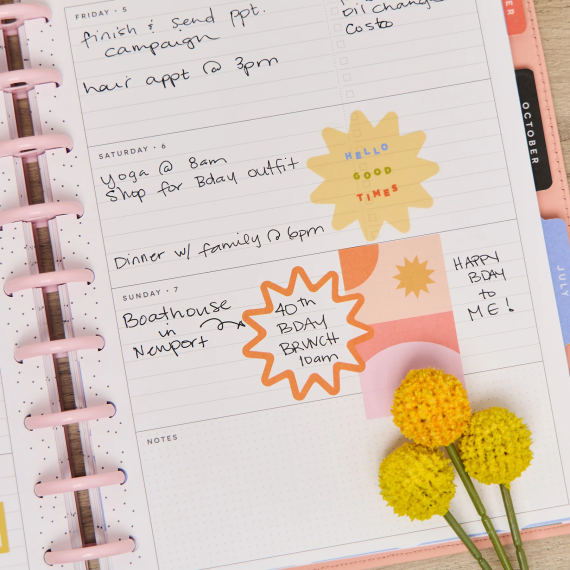 FRIDAY • 5
finish & send ppt.
campaign
hair appt @ 3pm
oil change
Costco
SATURDAY • 6
yoga @ 8am
Shop for Bday outfit
Dinner w/ family @ 6pm
HELLO
GOOD
TIMES
SUNDAY • 7
Boathouse
in
Newport
40th
BDAY
BRUNCH
10am
HAPPY
BDAY
to
ME!
NOTES
OCTOBER
JULY